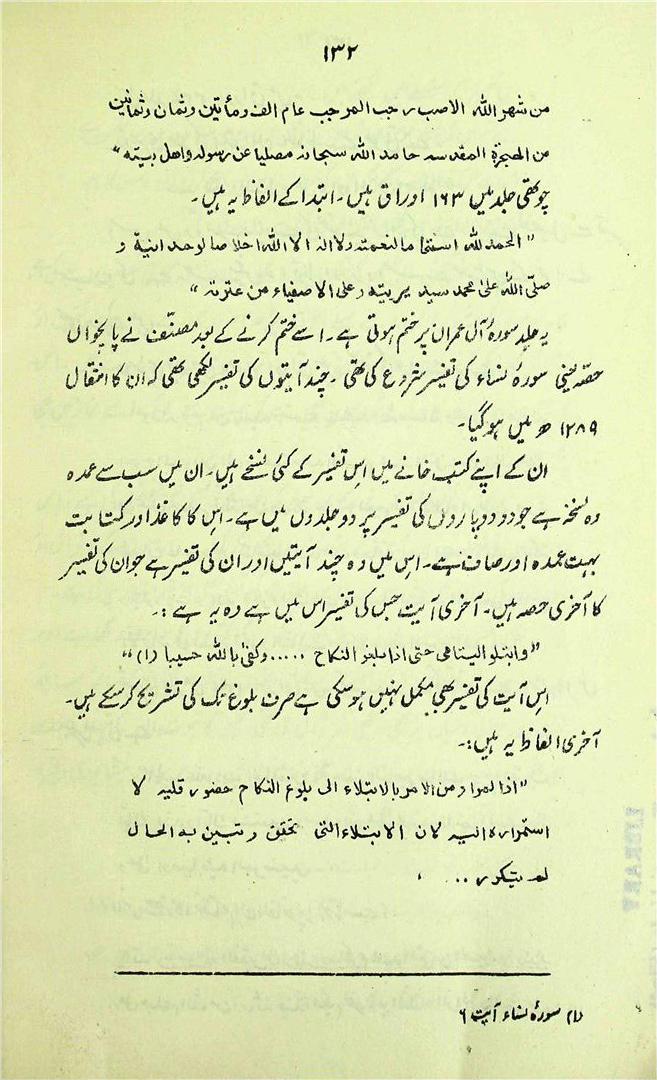 ۱۳۲
من شهر الله الاصب رجب المرجب عام الف ومأتين وثمان وثمانين
من الهجرة المقدسه حامد الله سبحانه مصليا عن رسوله واهل بيته"
چوتھی جلد میں ۱۶۳ اوراق ہیں۔ ابتدا کے الفاظ یہ ہیں۔
"الحمد لله استتما مالنعمته ولا اله الا الله اخلاصا لوحدانية و
صلّی الله علیٰ محمد سيد بريته وعلى الاصفياء من عترته"
یہ جلد سورۂ آل عمران پر ختم ہوتی ہے۔ اسے ختم کرنے کے بعد مصنّف نے پانچواں
حصّہ یعنی سورۂ نساء کی تفسیر شروع کی تھی۔ چند آیتوں کی تفسیر لکھی تھی کہ ان کا انتقال
۱۲۸۹ھ میں ہو گیا۔
ان کے اپنے کتب خانے میں اس تفسیر کے کئی نسخے ہیں۔ ان میں سب سے عمدہ
وہ نسخہ ہے جو دو دو پاروں کی تفسیر پر دو جلدوں میں ہے۔ اس کا کاغذ اور کتابت
بہت عمدہ اور صاف ہے۔ اس میں وہ چند آیتیں اور ان کی تفسیر ہے جو ان کی تفسیر
کا آخری حصہ ہیں۔ آخری آیت جس کی تفسیر اس میں ہے وہ یہ ہے:۔
"وابتلو اليتامى حتى اذا بلغو النكاح ..... وكفىٰ بالله حسيبا (۱)"
اس آیت کی تفسیر بھی مکمل نہیں ہو سکی ہے صرف بلوغ تک کی تشریح کر سکے ہیں۔
آخری الفاظ یہ ہیں:۔
"اذا لمراد من الامر بالابتلاء الى بلوغ النكاح حضور قلبه لا
استمراره اليه لان الابتلاء التى تحقق و تبين به الحال
لم يتكور ...
(۱) سورۂ نساء آیت ۶